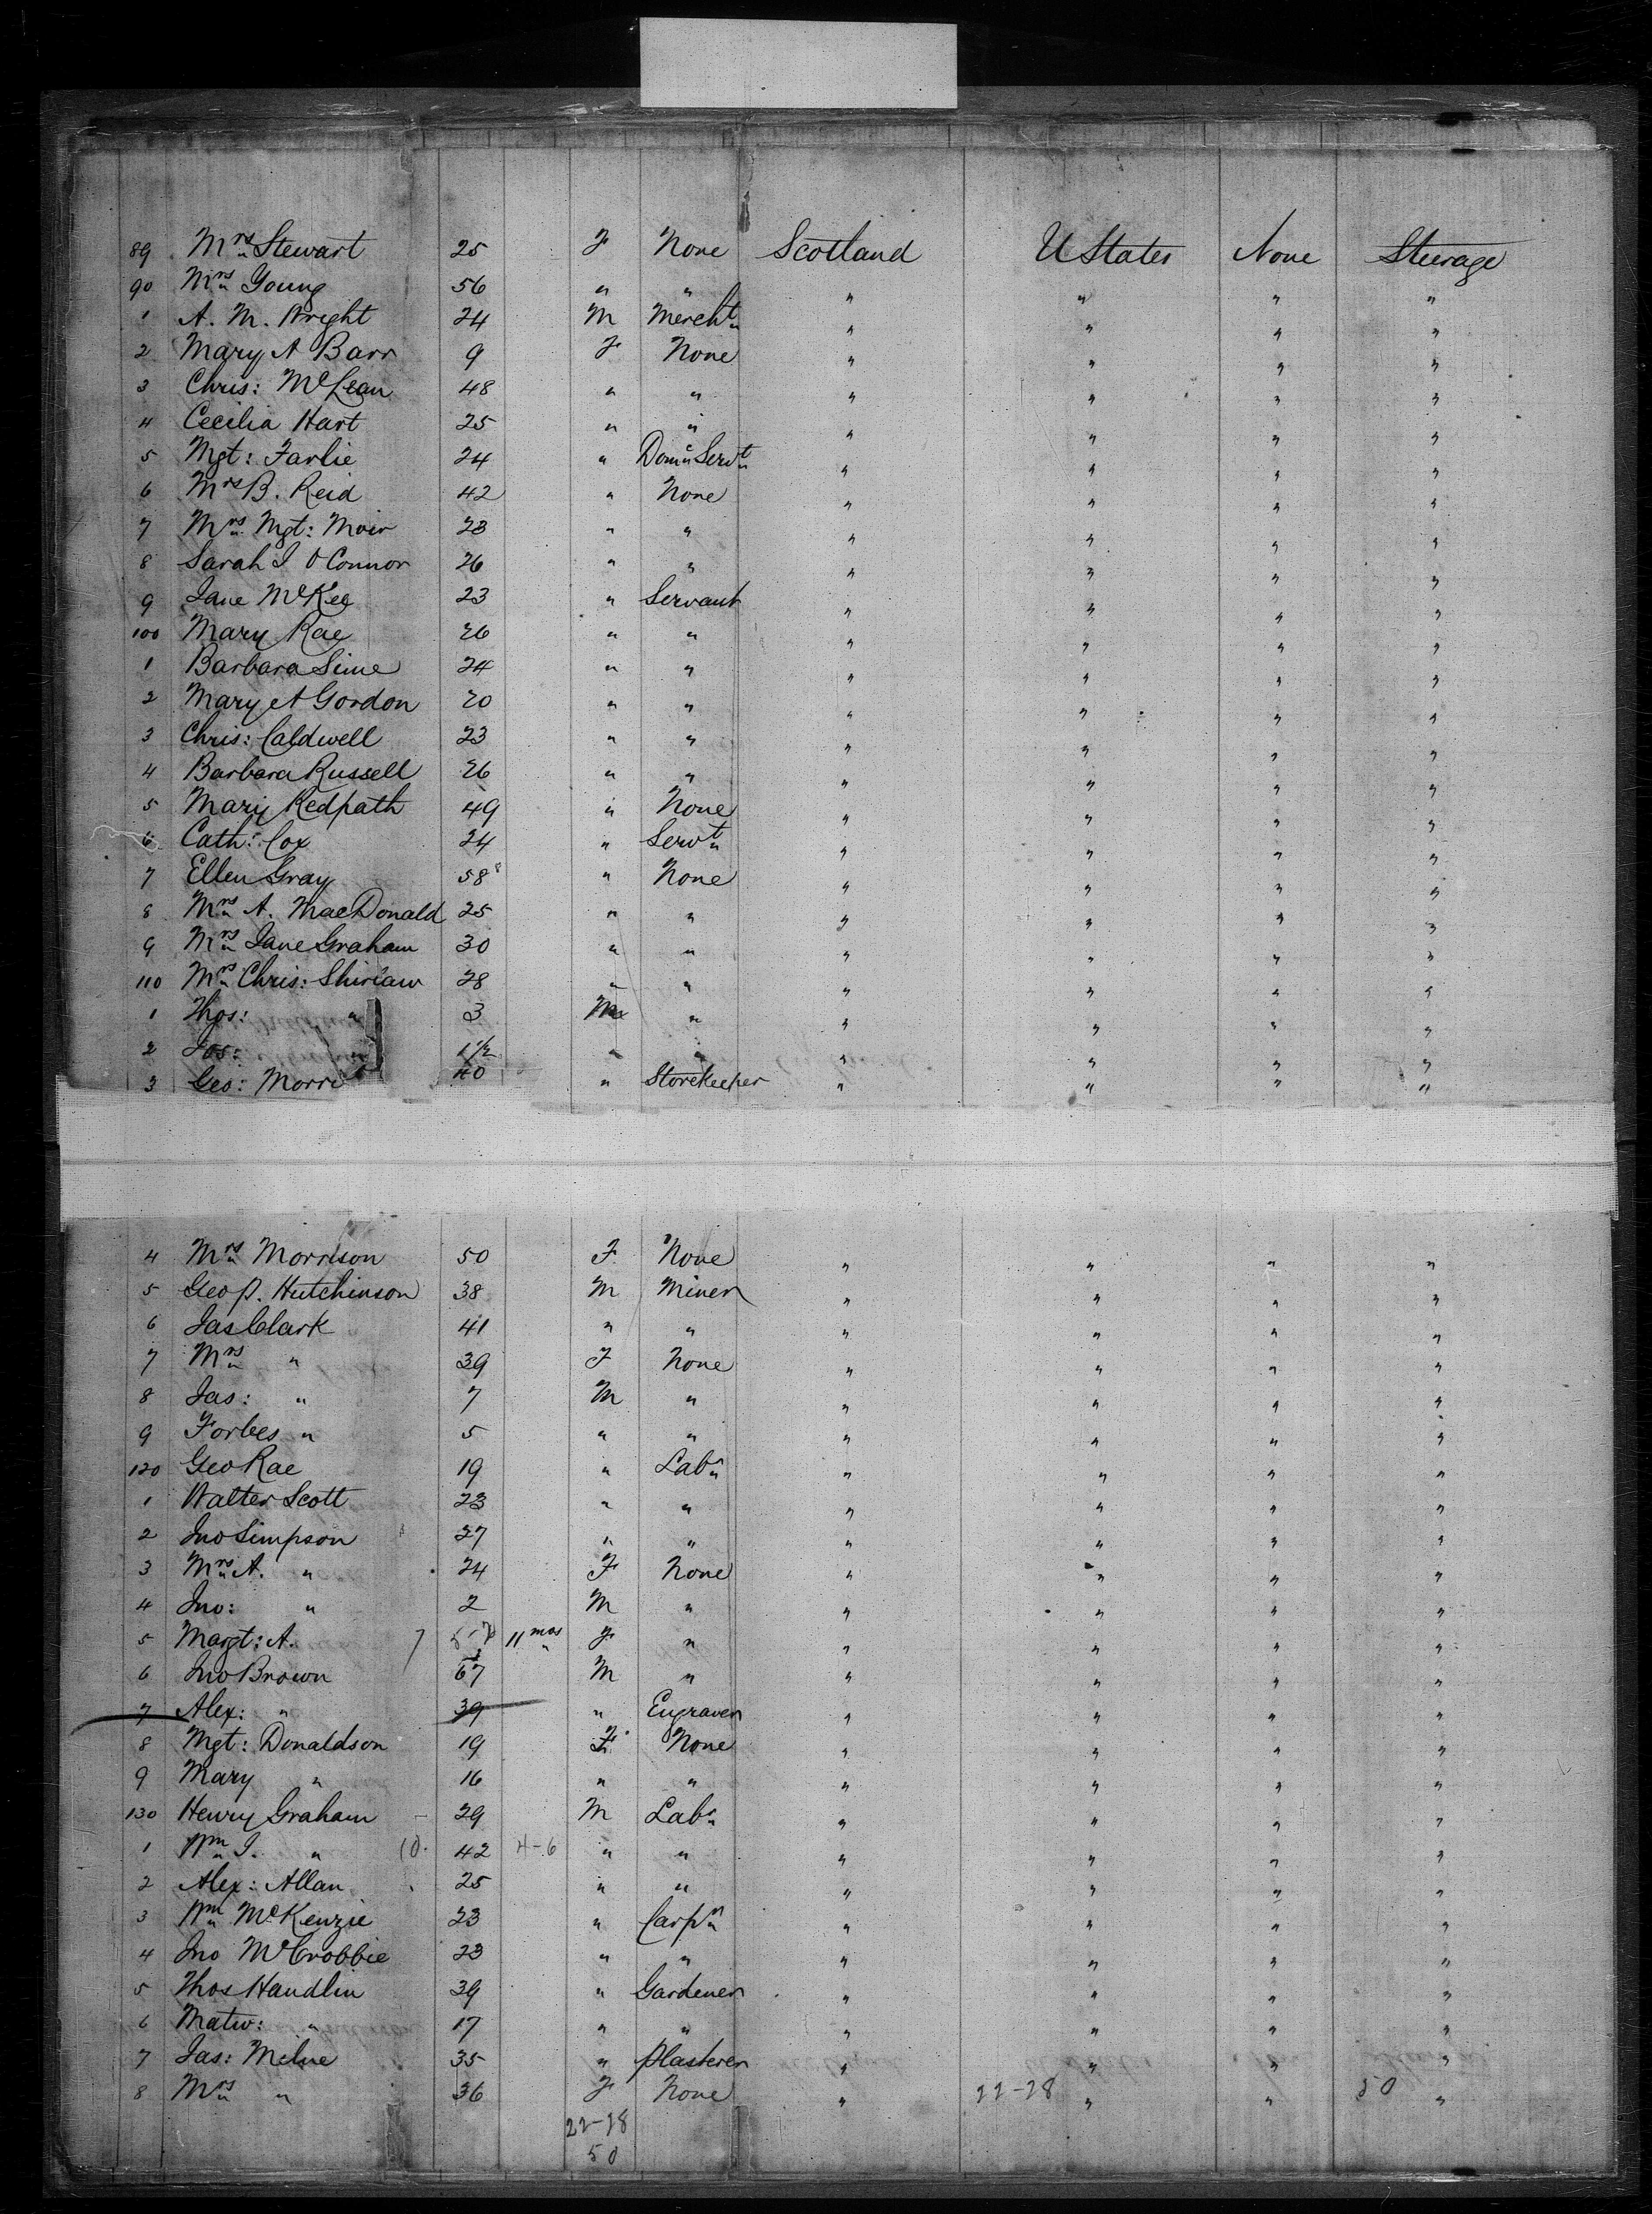 89 Mrs Stewart 25 F None Scotland U States None Steerage
90 Mrs Young 56 " " " " " "
1 A. M. Wright 24 M Mercht " " " "
2 Mary A Barr 9 F None " " " "
3 Chris: McLean 48 " " " " " "
4 Cecilia Hart 25 " " " " " "
5 Mgt: Farlie 24 " Domc Servt " " " "
6 Mrs B. Reid 42 " None " " " "
7 Mrs Mgt: Moir 23 " " " " " "
8 Sarah J O Connor 26 " " " " " "
9 Jane McKee 23 " Servant " " " "
100 Mary Rae 26 " " " " " "
1 Barbara Sime 24 " " " " " "
2 Mary A Gordon 20 " " " " " "
3 Chris: Caldwell 23 " " " " " "
4 Barbara Russell 26 " " " " " "
5 Mary Redpath 49 " None " " " "
6 Cath: Cox 24 " Servt " " " "
7 Ellen Gray 58 " None " " " "
8 Mrs A. MacDonald 25 " " " " " "
9 Mrs Jane Graham 30 " " " " " "
110 Mrs Chris: Shirlaw 28 " " " " " "
1 Thos: " 3 M " " " " "
2 Jos: " 1 1/2 " " " " " "
3 Geo: Morri 40 " Storekeeper " " " "
4 Mrs Morrison 50 F None " " " "
5 Geo P. Hutchinson 38 M Miner " " " "
6 Jas Clark 41 " " " " " "
7 Mrs " 39 F None " " " "
8 Jas: " 7 M " " " " "
9 Forbes " 5 " " " " " "
120 Geo Rae 19 " Labr " " " "
1 Walter Scott 23 " " " " " "
2 Jno Simpson 27 " " " " " "
3 Mrs A. " 24 F None " " " "
4 Jno: " 2 M " " " " "
5 Margt: A. 11 mos F " " " " "
6 Jno Brown 67 M " " " " "
7 Alex: " 39 " Engraver " " " "
8 Mgt: Donaldson 19 F None " " " "
9 Mary " 16 " " " " " "
130 Henry Graham 29 M Labr " " " "
1 Wm J. " 42 4-6 " " " " " "
2 Alex: Allan 25 " " " " " "
3 Wm McKenzie 23 " Carpr " " " "
4 Jno McCrobbie 23 " " " " " "
5 Thos Handlin 39 " Gardener " " " "
6 Matw: " 17 " " " " " "
7 Jas: Milne 35 " Plasterer " " " "
8 Mrs " 36 F None " 22-28 " " 50 "
22-28
50